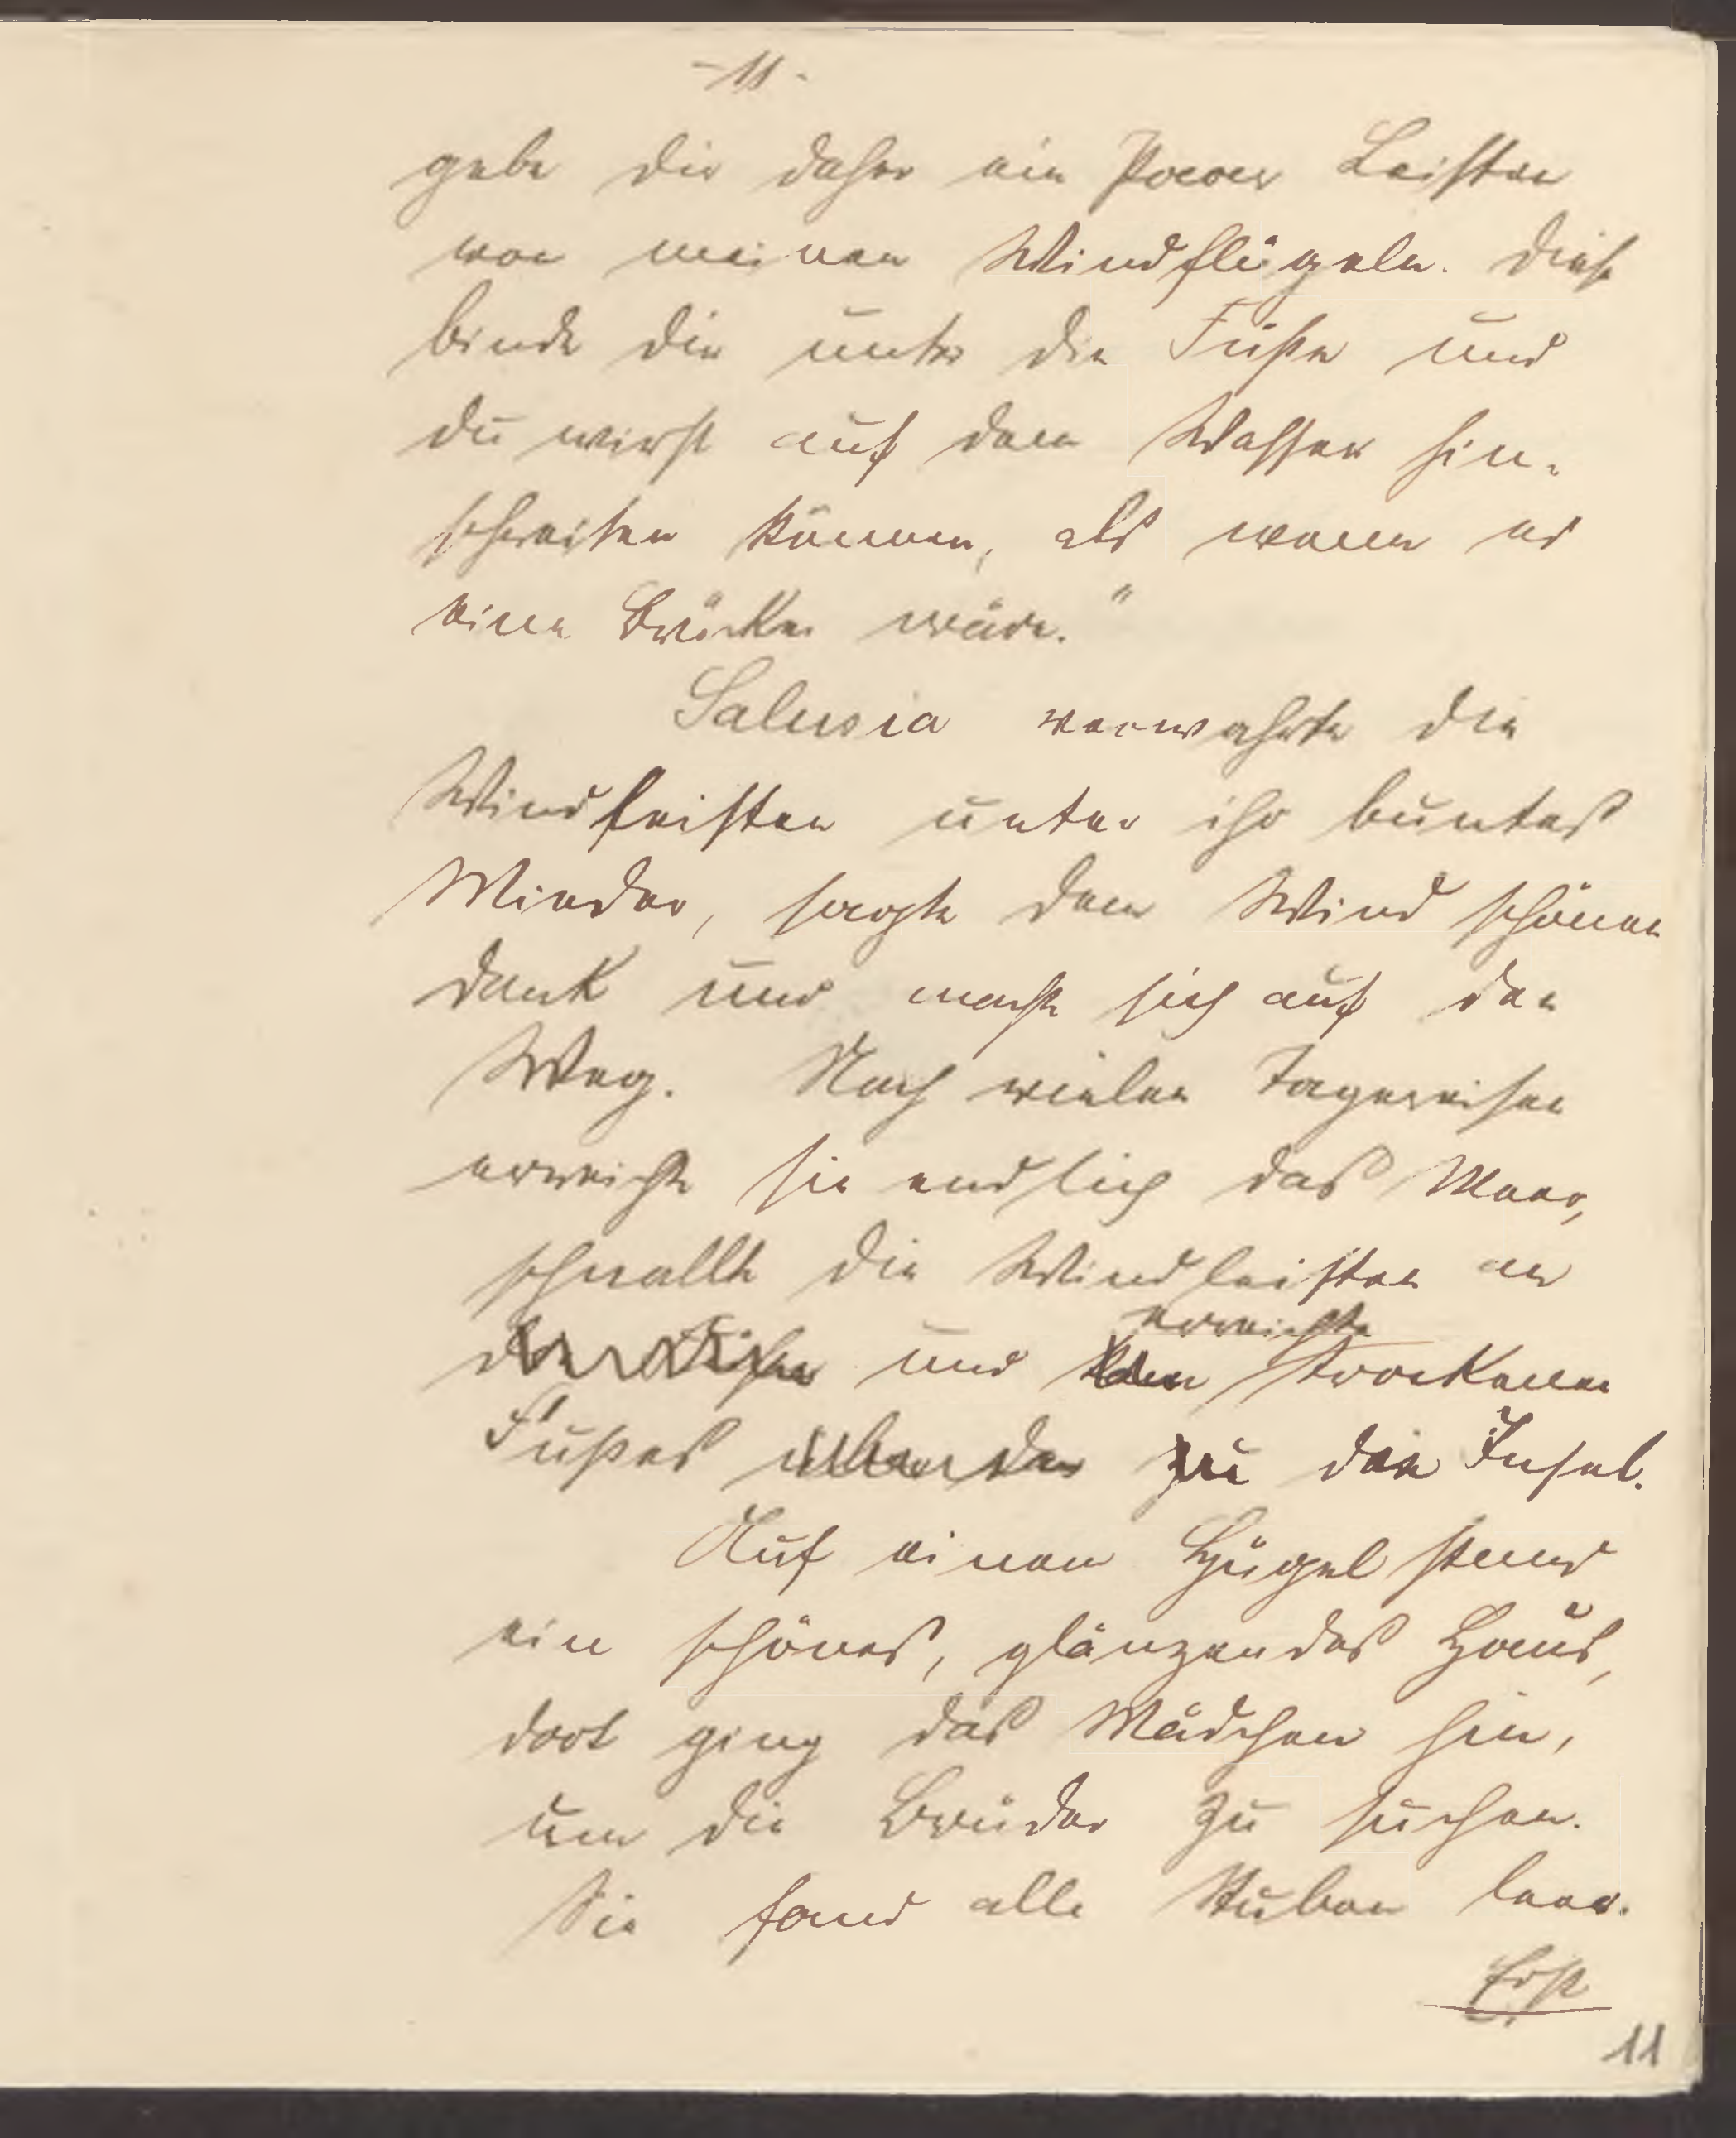 - 11 -
gebe dir daher ein Paar Leisten
von meinen Windflügeln. Diese
binde dir unter die Füße und
du wirst auf dem Wasser hin-
schreiten können, als wenn es
eine Brücke wäre."
Salusia verwahrte die
Windleisten unter ihr buntes
Mieder, sagte dem Wind schönen
Dank und machte sich auf den
Weg. Nach vielen Tagereisen
erreichte sie endlich das Meer,
schnallte die Windleisten an
die Füße und erreichte trockenen
Fußes über das zu der Insel.
Auf einem Hügel stand
ein schönes, glänzendes Haus,
dort ging das Mädchen hin,
um die Brüder zu suchen.
Sie fand alle Stuben leer.
Erst
11